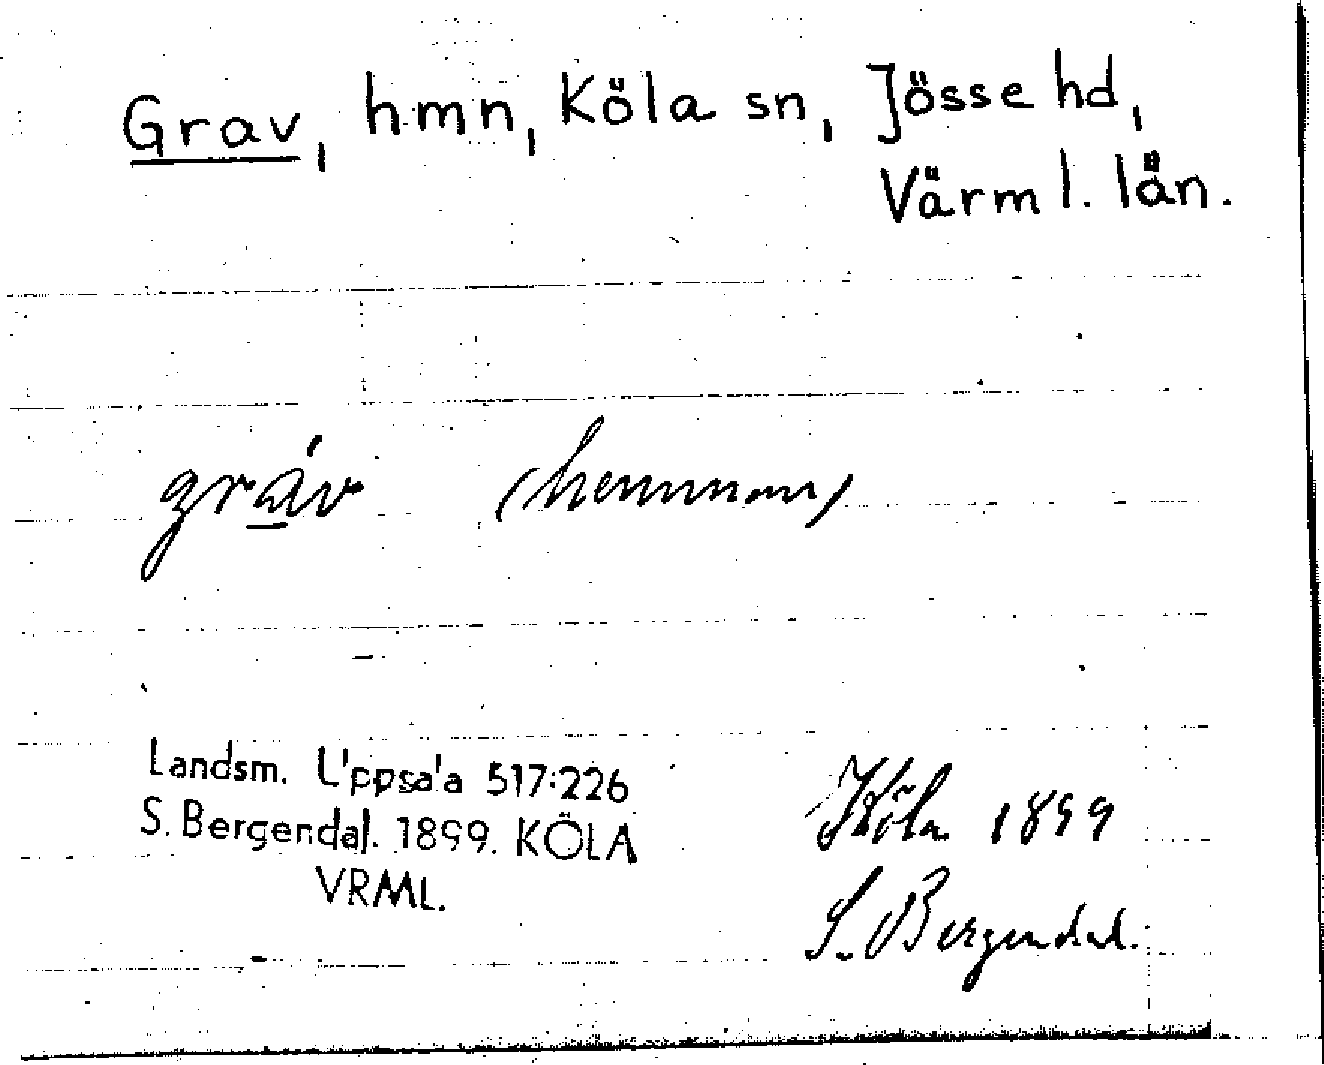 Grav, hmn, Köla sn, Jösse hd,
Värml. län.
gráv (hemman)
Landsm. Uppsala 517:226
S. Bergendal. 1899. KÖLA
VRML.
Köla 1899
S. Bergendal.